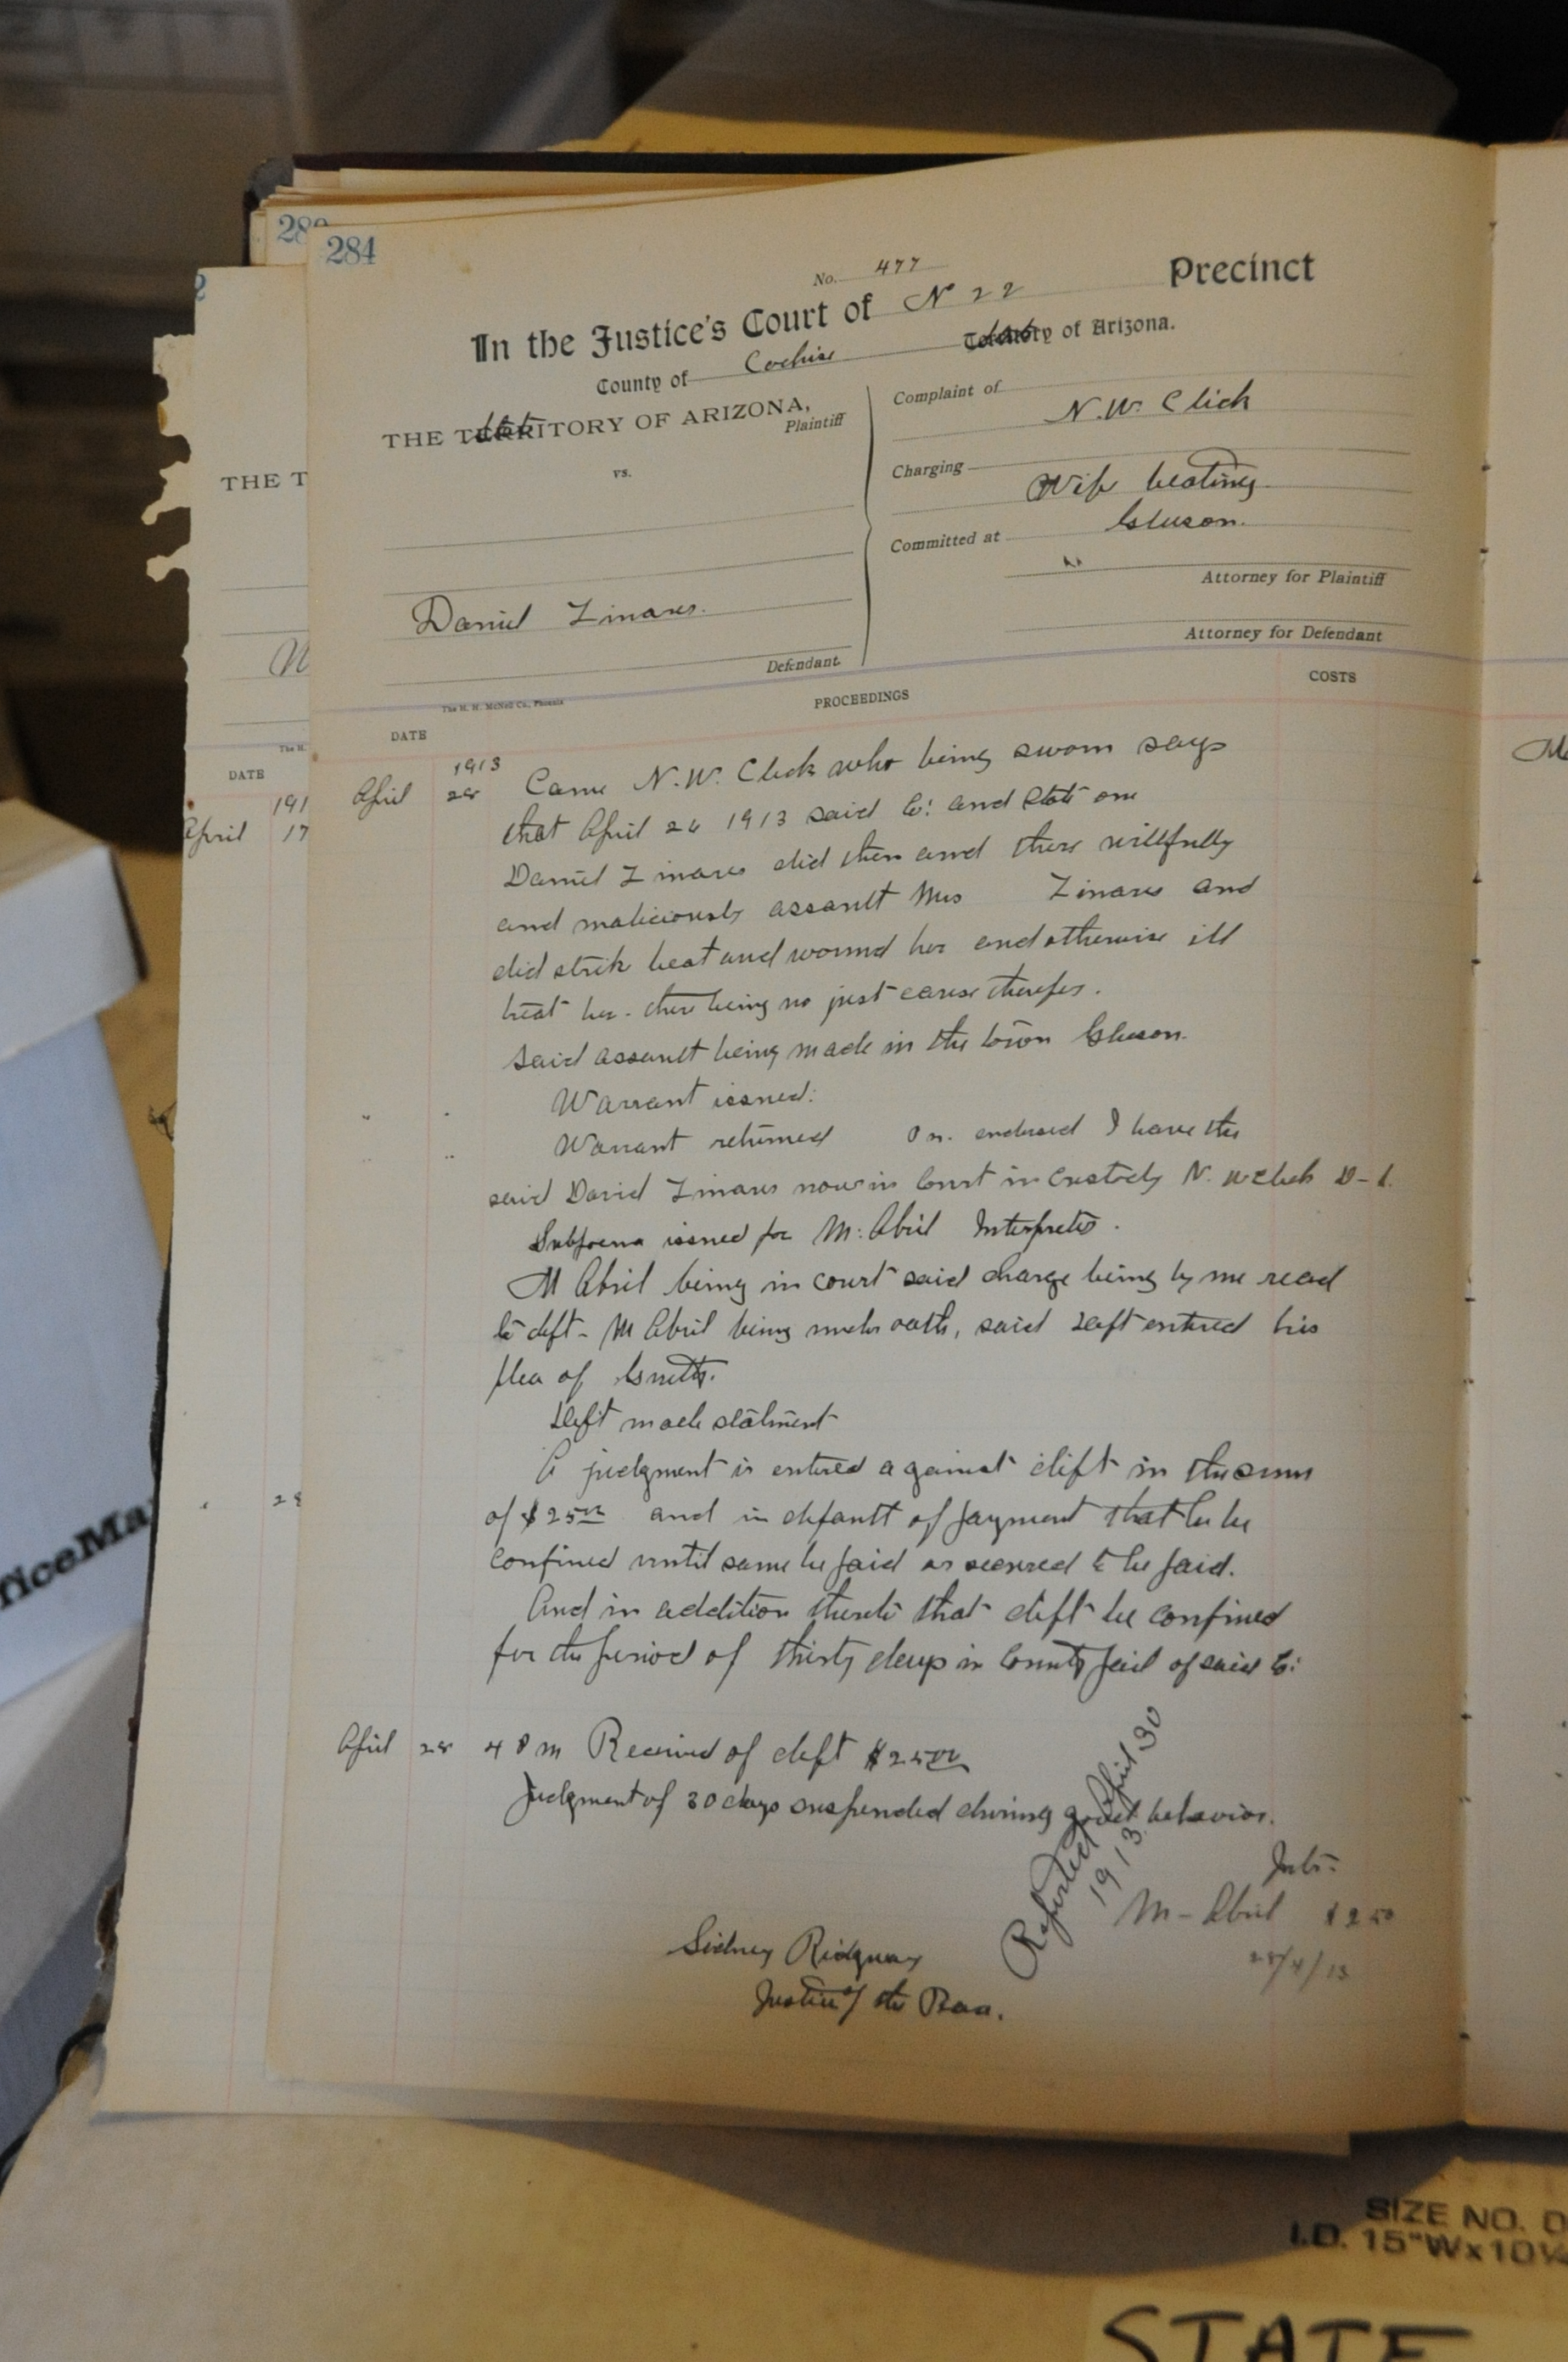 280
284
No. 477
In the Justice's Court of No 22 Precinct
County of Cochise State of Arizona.
THE State OF ARIZONA,
Plaintiff
vs.
Daniel Linares.
Defendant.
Complaint of N.W. Click
Charging Wife beating
Committed at Gleeson.
Attorney for Plaintiff
Attorney for Defendant
The H. H. McNeil Co., Phoenix
DATE
PROCEEDINGS
COSTS
1913
April 28 Came N.W. Click who being sworn says
that April 26 1913 said Co: and State one
Daniel Linares did then and there willfully
and maliciously assault Mrs Linares and
did strik beat and wound her and otherwise ill
treat her. there being no just cause therefor.
Said assault being made in the town Gleeson.
Warrant issued:
Warrant returned On. endorsed I have the
said David Linares now in Court in Custody N. W Click D-S.
Subpoena issued for M. Abril Interpreter.
M Abril being in court said charge being by me read
to deft - M Abril being under oath, said Deft entered his
plea of Guilty.
Deft made statment
A judgment is entered against deft in the sum
of $25.00 and in default of payment that he be
confined until same be paid or secured to be paid.
And in addition thereto that deft be confined
for the period of thirty days in County Jail of said Co:
April 28 4 P m Received of deft $25.00
Judgment of 30 days suspended during good behavior.
Reported April 30
1913
Intr.
M - Abril $2.50
28/4/13
Sidney Ridgway
Justice of the Peace.
THE T
The H.
DATE
191
April 17
28
ficeMa
SIZE NO. D
I.D. 15"Wx10¼
STATE